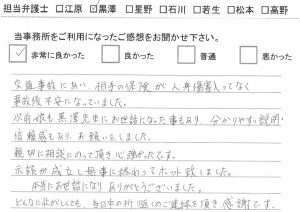 担当弁護士 □江原 ☑黒澤 □星野 □石川 □若生 □松本 □高野
当事務所をご利用になったご感想をお聞かせ下さい。
☑ 非常に良かった □ 良かった □ 普通 □ 悪かった
交通事故にあい、相手の保険が人身傷害入ってなく
事故後不安になっていました。
以前にも黒澤先生にお世話になった事もあり、分かりやすい説明・
信頼感もあり、お願いしました。
親切に相談にのって頂き心強かったです。
示談が成立し無事に終わってホット致しました。
本当にお世話になりありがとうございました。
どんなに忙がしくても、当日中の折り返しのご連絡を頂き感謝です。